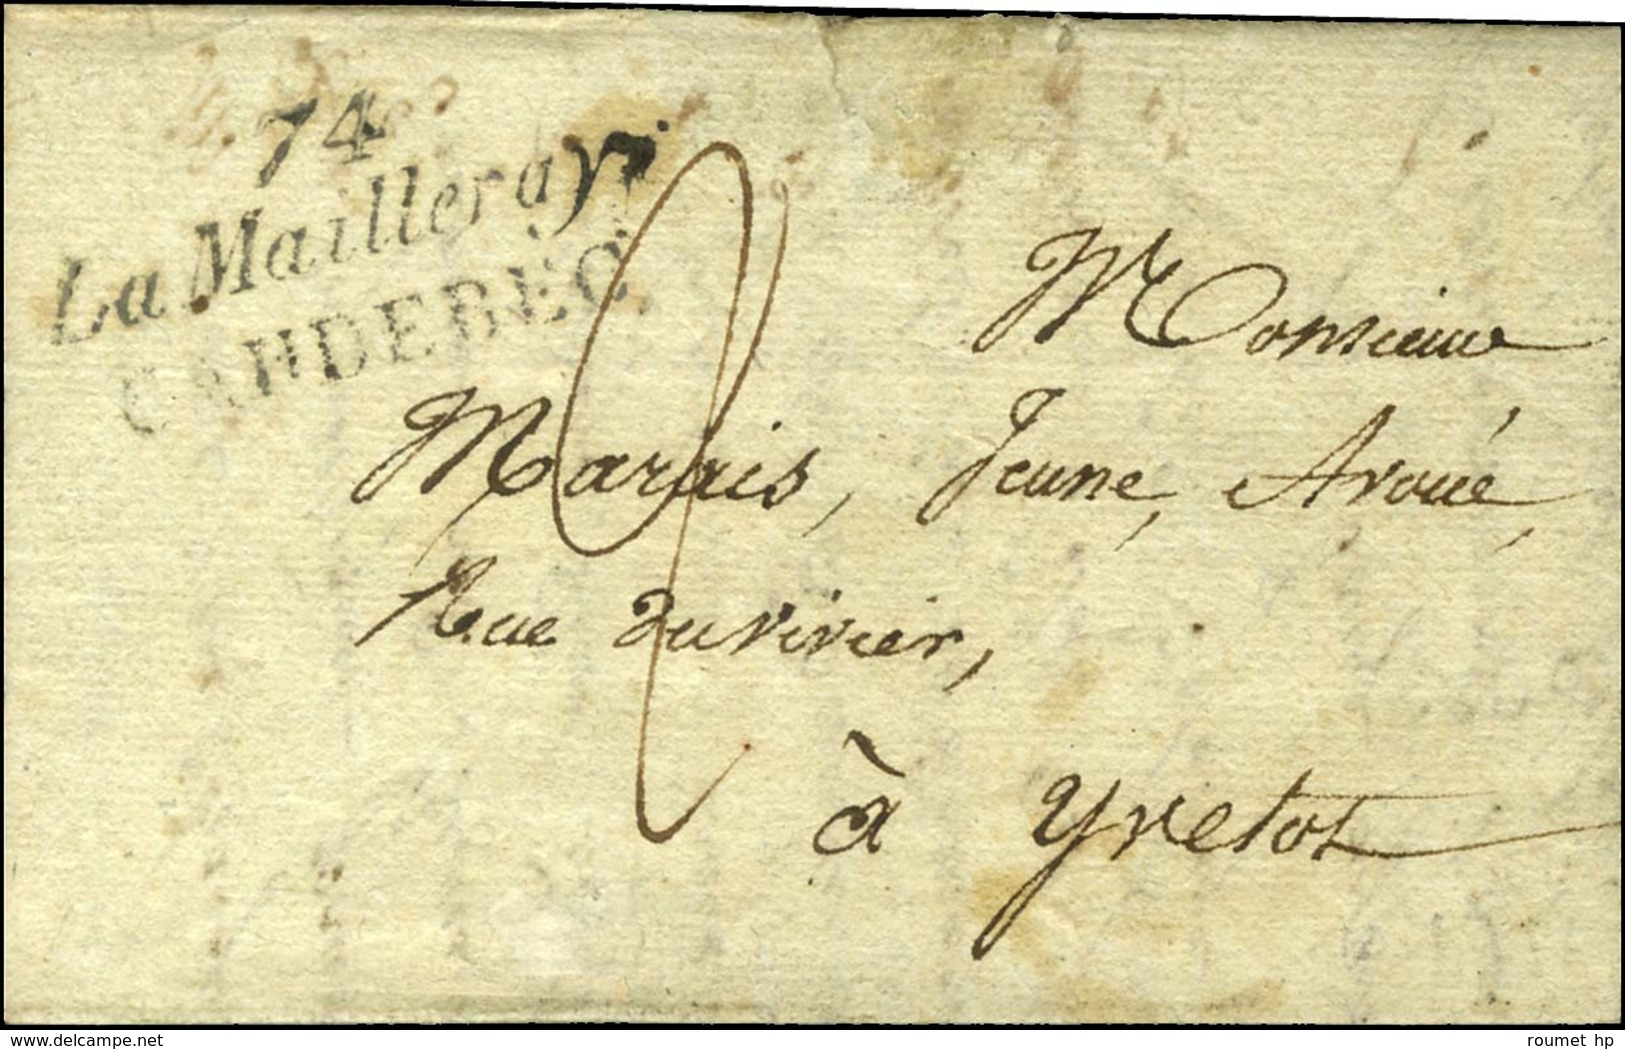 74
La Mailleraye
CAUDEBEC
2
Monsieur
Marais, Jeune, Avoué,
Rue du vivier,
à Yvetot
delcampe.net
roumet hp